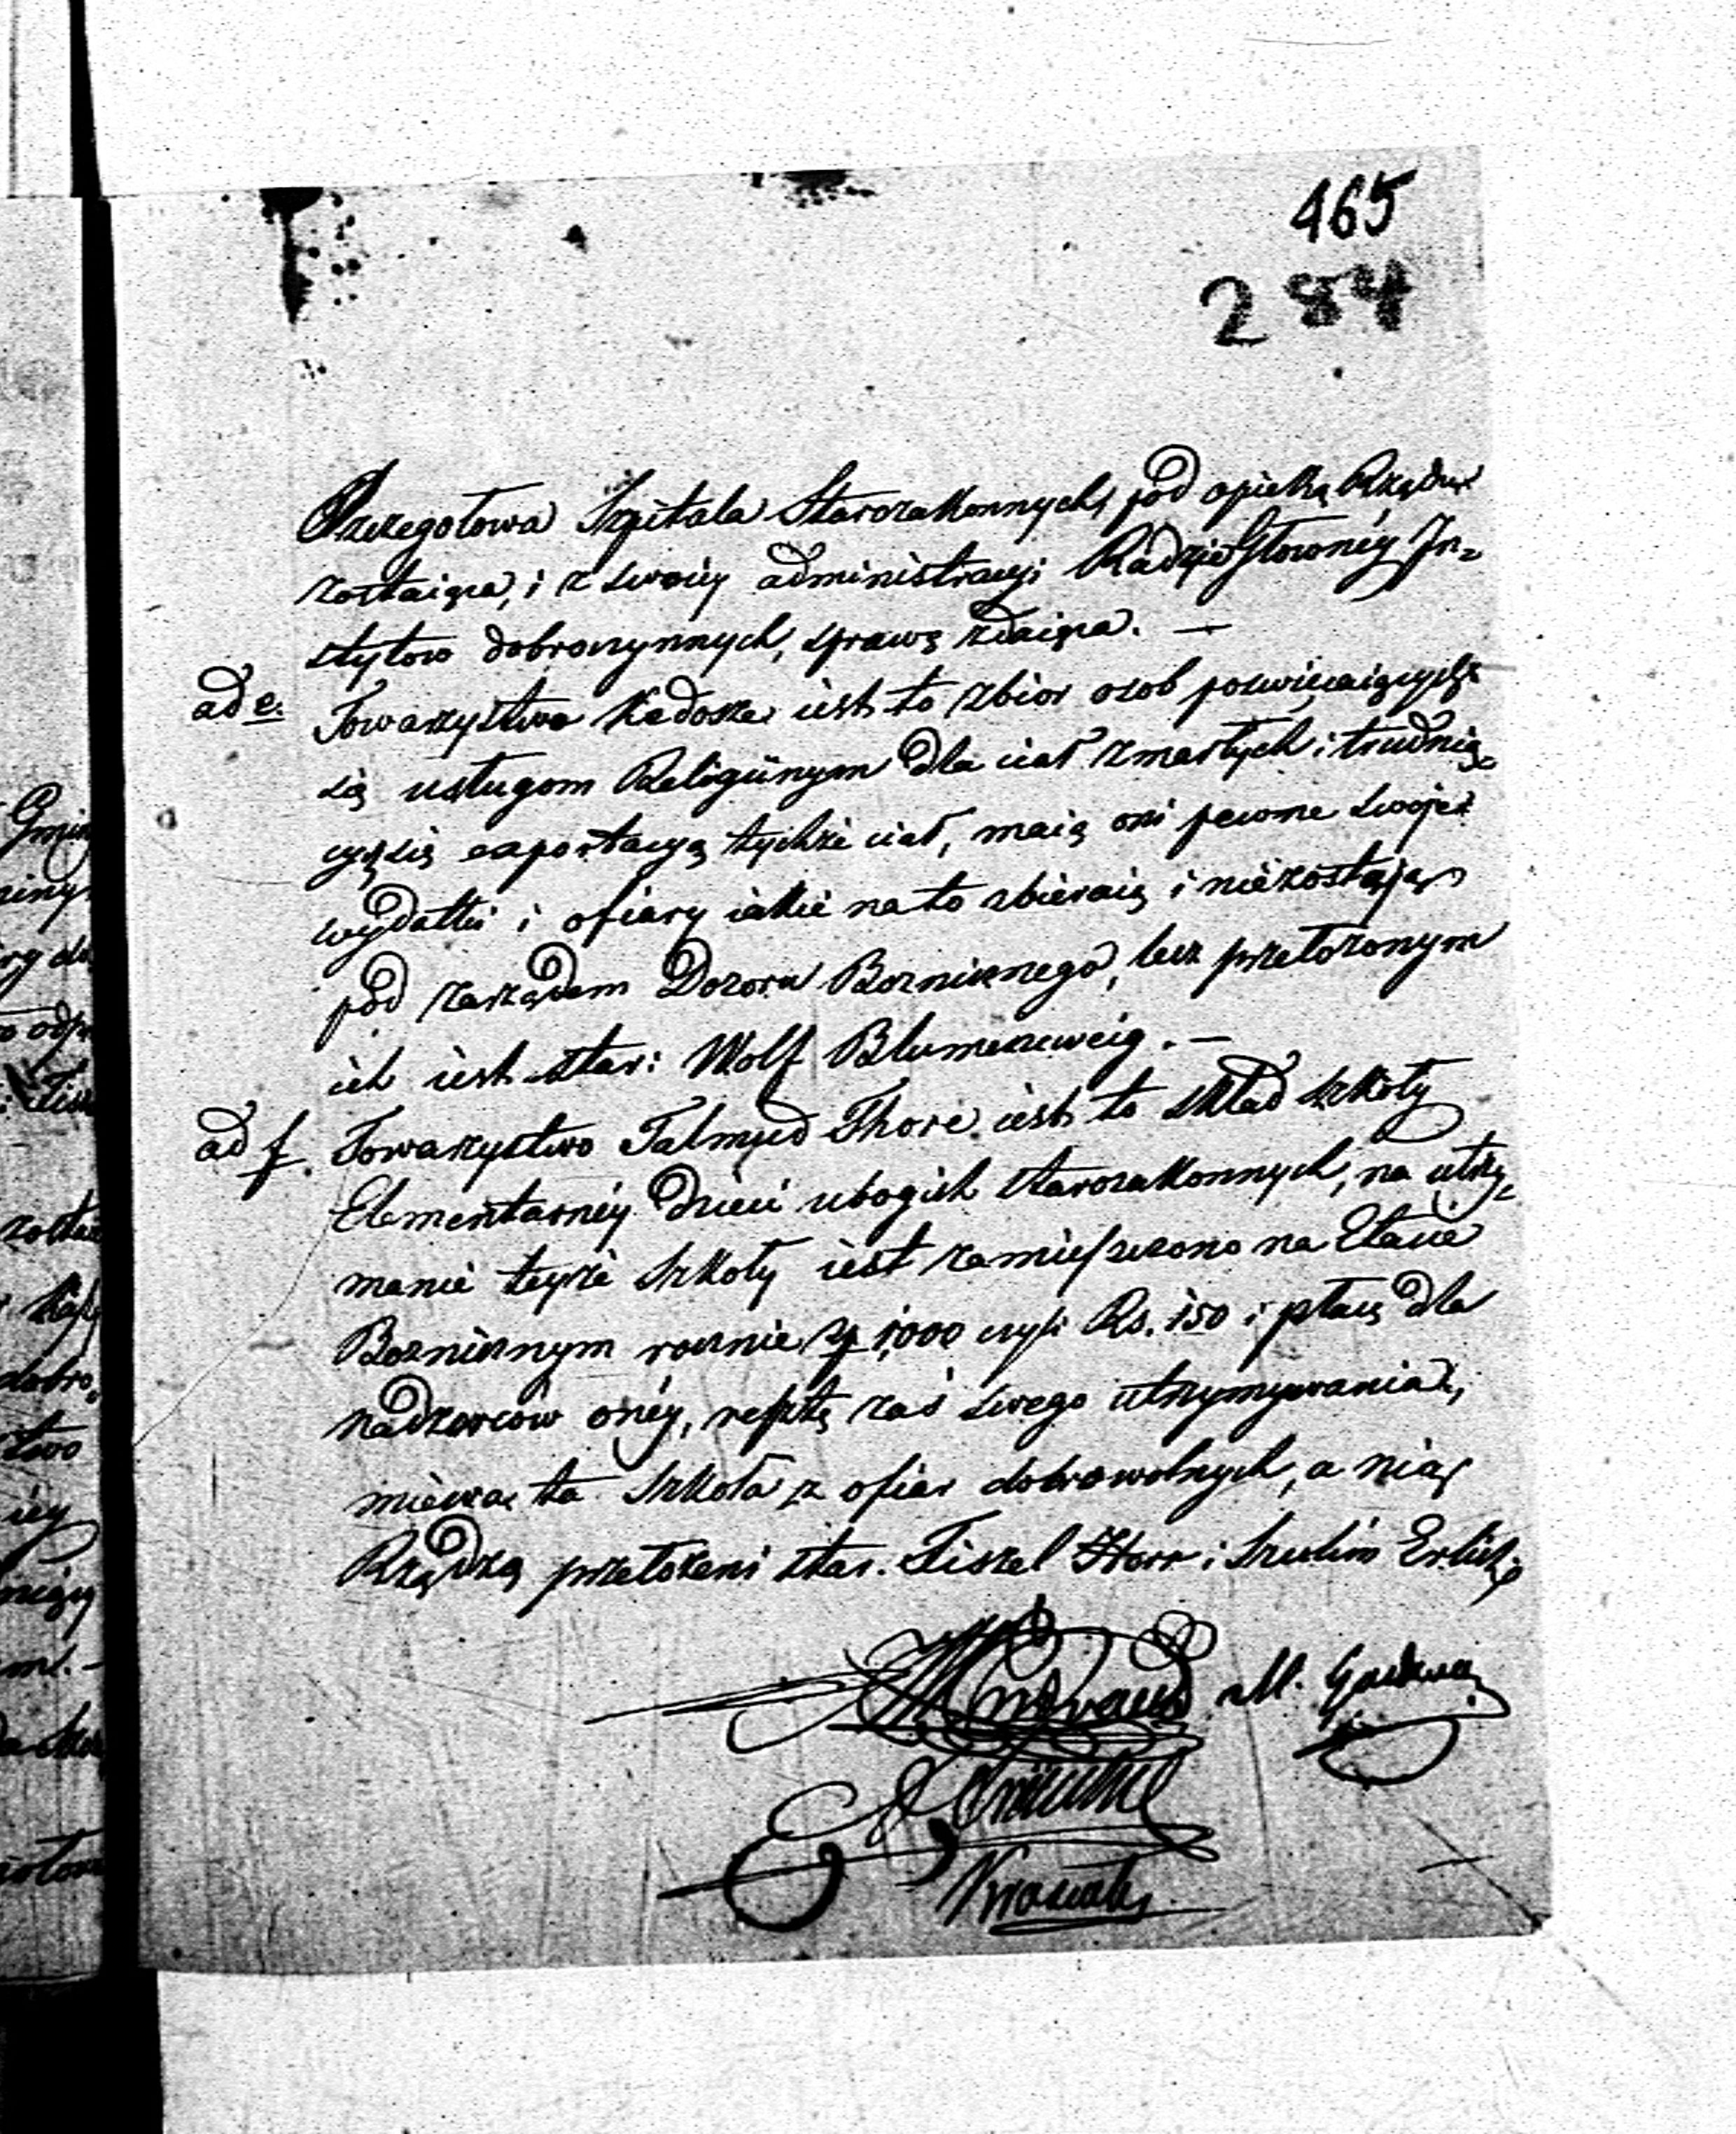 465
284
Szczegołowa Szpitala Starozakonnych, pod opieką Rządu
zostaiąca, i z swoiey administracyi Radzie Głowney In=
stytow dobroczynnych, sprawę zdaiąca. —
ad e. Towarzystwo Kadosze iest to zbior osob poswięcaiących
się usługom Religiinym dla ciał zmarłych i trudnią=
cych się exportacyą tychże ciał, maią oni pewne swoje
wydatki i ofiary iakie na to zbieraią i niezostają
pod zarządem Dozoru Boznicznego, lecz przełożonym
ich iest star: Wolf Blumenzweig. —
ad f. Towarzystwo Talmud Thore iest to skład szkoły
Elementarney dzieci ubogich starozakonnych, na utrzy=
manie teyże Szkoły iest zamieszczono na Etacie
Boznicznym rocznie Zł 1,000 czyli Rs. 150 i płacę dla
nadzorcow oney, resztę zaś swego utrzymywania,
miewa ta Szkoła z ofiar dobrowolnych, a nią
Rządzą przełożeni star. Fiszel Horr i Szulim Erlich
M.